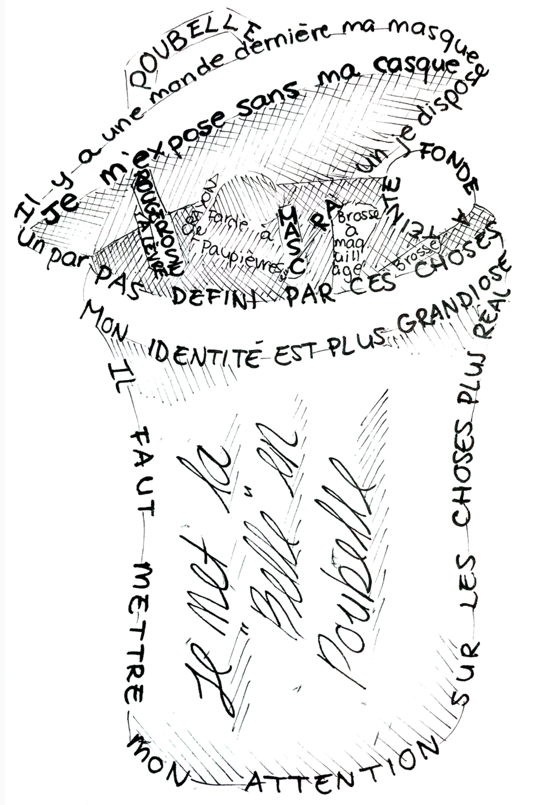 POUBELLE
Il y a une monde dernière ma masque
Je m'expose sans ma casque
Un par un je dispose
ROUGEROSE
A LEVRE
Farde à
Paupières
MASCARA
Brosse
à
maq
uill
age
Brosse
FONDE
A TEINTE
PAS DEFINI PAR CES CHOSES
MON IDENTITÉ EST PLUS GRANDIOSE
IL FAUT METTRE
MON ATTENTION
SUR LES CHOSES PLUS RÉAL
Je Met la
"Belle" en
Poubelle